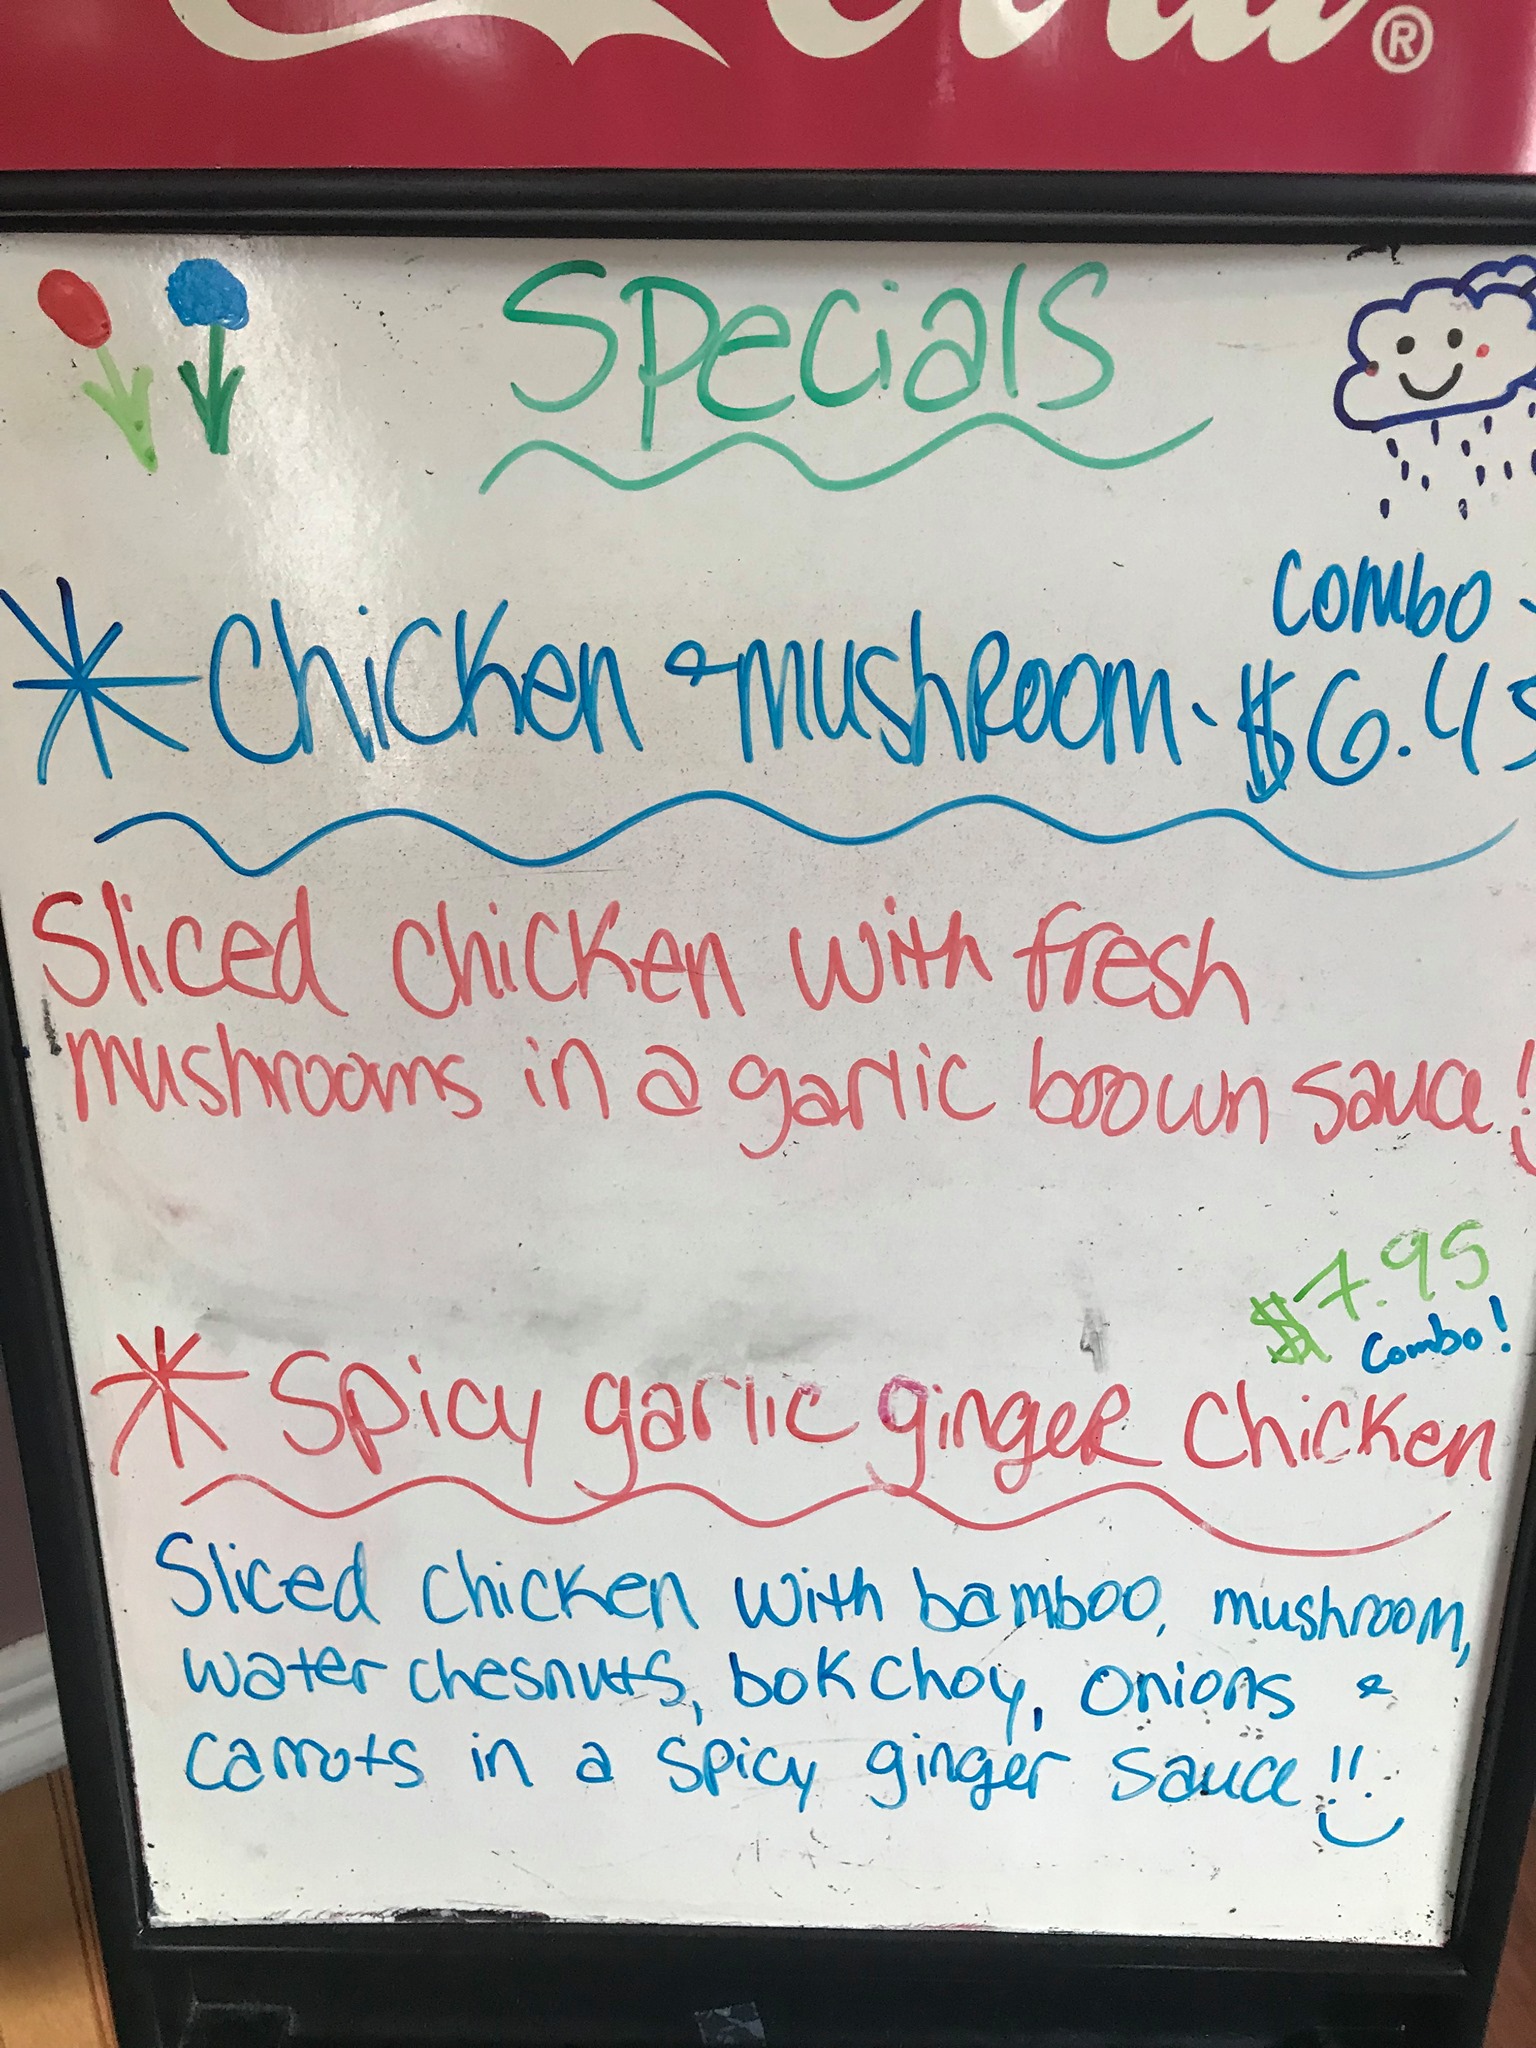 Cola®
Specials
combo
* Chicken & mushroom. $6.45
Sliced chicken with fresh
mushrooms in a garlic brown sauce!
$7.95
combo!
* Spicy garlic ginger chicken
Sliced chicken with bamboo, mushroom,
water chesnuts, bok choy, onions &
carrots in a spicy ginger sauce!!